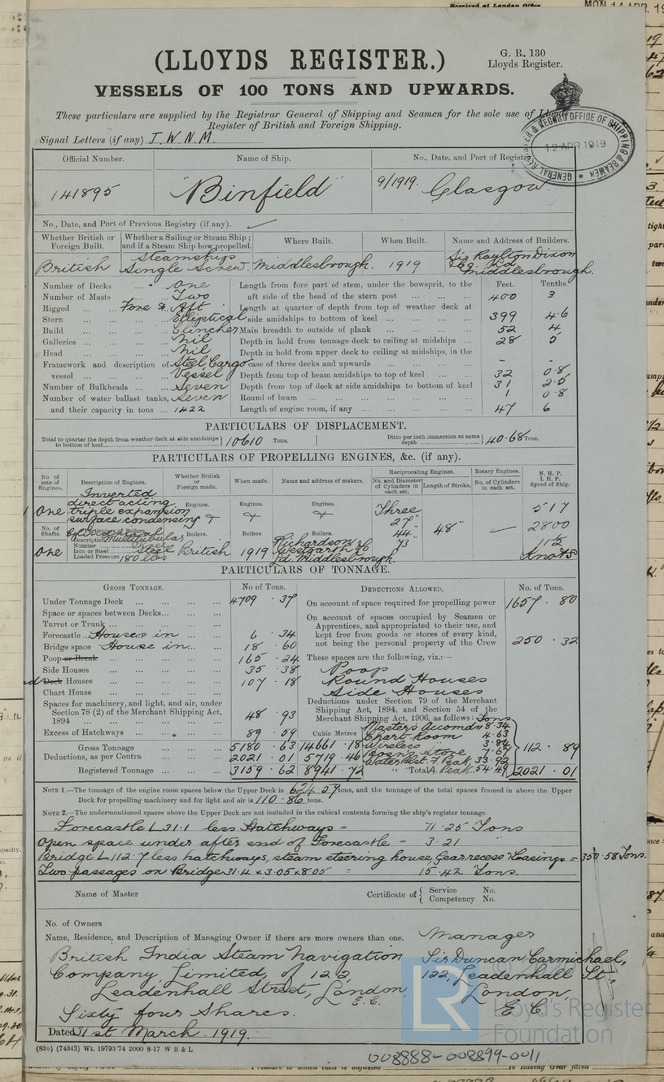 Received at London Office
MON 14 APR. 19
(LLOYDS REGISTER.)
G. R, 130
Lloyds Register.
VESSELS OF 100 TONS AND UPWARDS.
These particulars are supplied by the Registrar General of Shipping and Seamen for the sole use of
Register of British and Foreign Shipping.
GENERAL REGISTER & RECORD OFFICE OF SHIPPING & SEAMEN
12 APR 1919
Signal Letters (if any) J.W.N.M.
Official Number. Name of Ship. No., Date, and Port of Registry
141895 "Binfield" 9/1919. Glasgow
No., Date, and Port of Previous Registry (if any).
Whether British or Foreign Built. Whether a Sailing or Steam Ship; and if a Steam Ship how propelled. Where Built. When Built. Name and Address of Builders.
British Steamship Single Screw. Middlesbrough. 1919 Sir Raylton Dixon & Co. Ld. Middlesbrough.
Number of Decks ... One Length from fore part of stem, under the bowsprit, to the Feet. Tenths.
Number of Masts Two aft side of the head of the stern post ... 400 3
Rigged ... Fore & Aft Length at quarter of depth from top of weather deck at
Stern ... Elliptical side amidships to bottom of keel ... 399 4.6
Build ... Clincher Main breadth to outside of plank ... 52 4
Galleries ... Nil Depth in hold from tonnage deck to ceiling at midships ... 28 5
Head ... Nil Depth in hold from upper deck to ceiling at midships, in the
Framework and description of Steel Cargo case of three decks and upwards ... - -
vessel ... Vessel Depth from top of beam amidships to top of keel ... 32 0.8
Number of Bulkheads ... Seven Depth from top of deck at side amidships to bottom of keel 31 2.5
Number of water ballast tanks, Seven Round of beam ... 1 0.8
and their capacity in tons ... 1422 Length of engine room, if any ... 47 6
PARTICULARS OF DISPLACEMENT.
Total to quarter the depth from weather deck at side amidships to bottom of keel 10610 Tons. Ditto per inch immersion at same depth 40.68 Tons.
PARTICULARS OF PROPELLING ENGINES, &c. (if any).
No. of sets of Engines. Description of Engines. Whether British or Foreign made. When made. Name and address of makers. Reciprocating Engines. No. and Diameter of Cylinders in each set. Length of Stroke. Rotary Engines. No. of Cylinders in each set. N. H. P. I. H. P. Speed of Ship.
One Inverted direct acting triple expansion surface condensing Engines. Engines. Engines. Three 27" 44" 73 48" 517 2800 11½ Knots
No. of Shafts. Particulars of Boilers. Boilers. Boilers Boilers.
One Description Cylindrical Multitubular
Number Three
Iron or Steel Steel British 1919 Richardson Westgarth & Co Ld. Middlesbrough.
Loaded Pressure 180 lbs.
PARTICULARS OF TONNAGE.
GROSS TONNAGE. No. of Tons. DEDUCTIONS ALLOWED. No. of Tons.
Under Tonnage Deck ... 4709 . 37 On account of space required for propelling power 1657 . 80
Space or spaces between Decks ... On account of spaces occupied by Seamen or
Turret or Trunk ... Apprentices, and appropriated to their use, and
Forecastle Houses in 6 . 34 kept free from goods or stores of every kind,
Bridge space House in 18 . 60 not being the personal property of the Crew 250 . 32
Poop or Break ... 165 . 24 These spaces are the following, viz.:—
Side Houses ... 35 . 38 Poop
Deck Houses ... 107 . 18 Round Houses
Chart House ... Side Houses
Spaces for machinery, and light, and air, under Section 78 (2) of the Merchant Shipping Act, 1894 ... 48 . 93 Deductions under Section 79 of the Merchant Shipping Act, 1894, and Section 54 of the Merchant Shipping Act, 1906, as follows: Tons
Masters Accomdn 8.34
Excess of Hatchways ... 89 . 59 Cubic Metres Chart Room 4.63
Gross Tonnage 5180 . 63 14661 . 18 Wireless 3.82
Deductions, as per Contra 2021 . 01 5719 . 46 Bosn's Store 7.67 112 . 89
Water Blst F Peak 33.92
Registered Tonnage 3159 . 62 8941 . 72 " A Peak 54.49 Total 2021 . 01
NOTE 1.—The tonnage of the engine room spaces below the Upper Deck is 624.29 tons, and the tonnage of the total spaces framed in above the Upper
Deck for propelling machinery and for light and air is 110.86 tons.
NOTE 2.—The undermentioned spaces above the Upper Deck are not included in the cubical contents forming the ship's register tonnage.
Forecastle L 31.1 less Hatchways = 71.25 Tons
Open space under after end of Forecastle = 3.21
Bridge L 112.7 less hatchways, steam steering house, Gear recess & Casings = 350.58 Tons.
Two passages on Bridge 31.4 x 3.05 x 8.05 = 15.42 Tons.
Name of Master Certificate of Service No. Competency No.
No. of Owners
Name, Residence, and Description of Managing Owner if there are more owners than one. Manager
British India Steam Navigation Sir Duncan Carmichael,
Company, Limited, of 122 122, Leadenhall St.,
Leadenhall Street, London E.C. London,
Sixty four Shares. E.C.
Dated 31st March 1919.
(83o) (74343) Wt. 19793/74 2000 8-17 W B & L
LR Lloyd's Register Foundation
008888-008899-0011